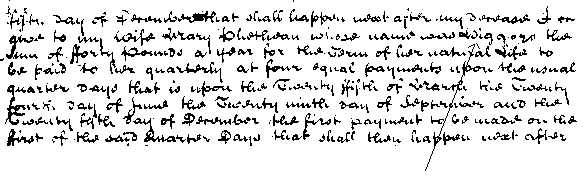 fifth day of December that shall happen next after my decease I or
give to my wife Mary Phethean whose name was Diggors the
sum of fforty Pounds a year for the Term of her natural Life to
be paid to her quarterly at four equal payments upon the usual
quarter days that is upon the Twenty ffifth of March the Twenty
fourth day of June the Twenty ninth day of September and the
Twenty fifth day of December the first payment to be made on the
first of the said Quarter Days that shall then happen next after